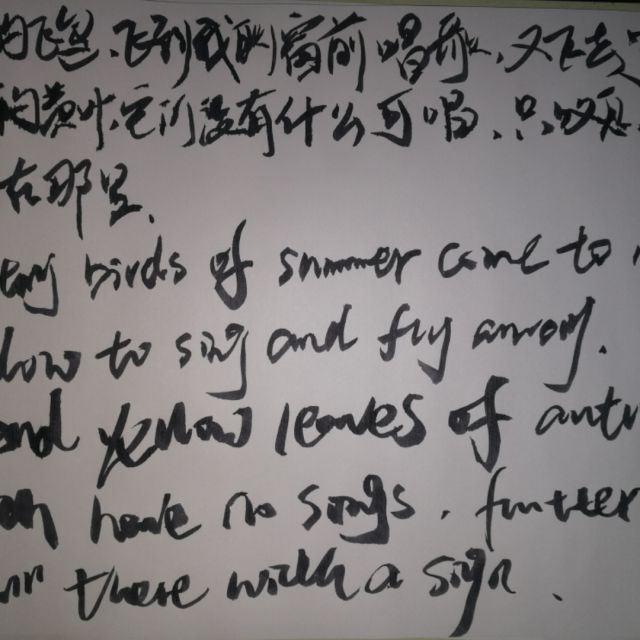 的飞鸟，飞到我的窗前唱歌，又飞去
的黄叶，它们没有什么可唱，只叹息
在那里，
ay birds of summer came to
dow to sing and fly away.
and yellow leaves of autu
ch have no songs, flutter
there with a sign.